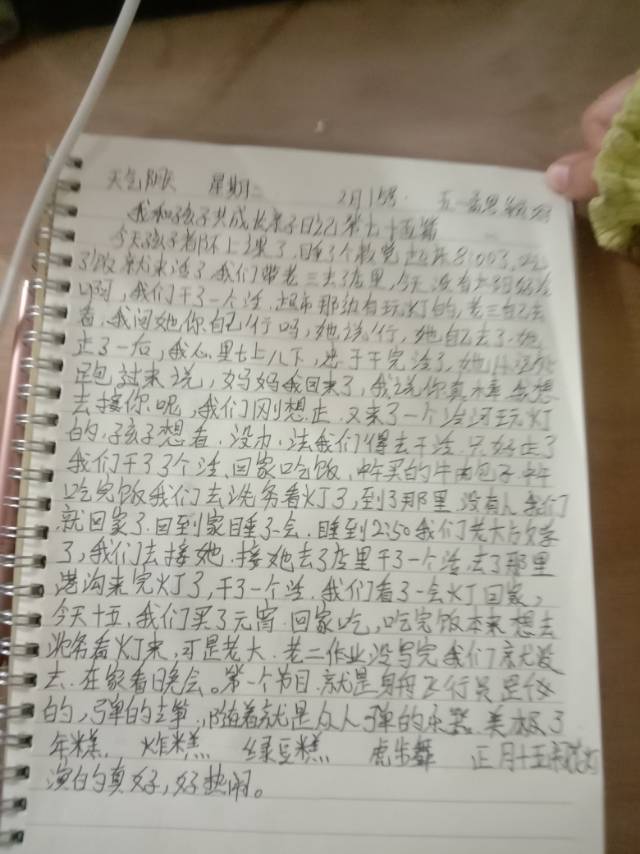 天气 阴天 星期二 2月15号 五一
我和孩子共成长亲子日记第七十五篇
今天孩子都不上课了,睡了个教觉
了饭就来活了我们带老三去了店里,今天没有
啊,我们干了一个活,超市那边有玩灯的,老三自己去
看,我问她你自己行吗,她说行,她自己去了,她
走了一后,我心里七上八下,终于干完活了,她
跑过来说,妈妈我回来了,我说你真棒 想
去接你呢,我们刚想走,又来了一个活 玩灯
的,孩子想看,没办法我们得去干活 只好走了
我们干了3个活、回家吃饭、昨买的牛肉包子
吃完饭我们去 务看灯了,到了那里 没有人 我们
就回家了.回到家睡了会.睡到2:50我们老大
了,我们去接她.接她去了店里干了一个活.去了那里
港沟来完灯了,干了一个活.我们看了一会灯回家,
今天十五,我们买了元宵.回家吃,吃完饭本来想去
务看灯来,可是老大.老二作业没写完我们就没
去.在家看晚会。第一个节目.就是
的,弹的古筝,随着就是众人弹的乐器 美极了
年糕. 炸糕 绿豆糕 虎步舞 正月十五
演的真好,好热闹。